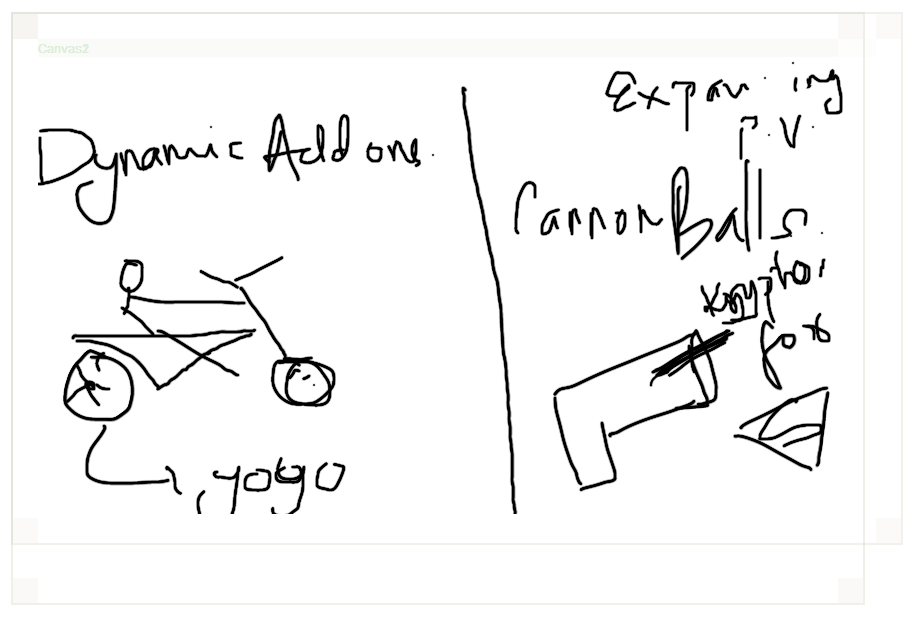 Canvas2
Dynamic Add ons.
yogo
Expanding
P.V.
Cannon Balls.
for